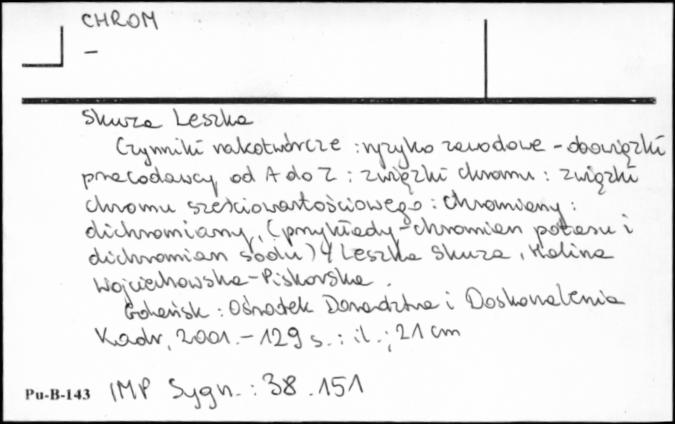 CHROM
–
Skuza Leszka
Czynniki rakotwórcze : ryzyko zawodowe - obowiązki
pracodawcy od A do Z : związki chromu : związki
chromu sześciowartościowego : chromiany :
dichromiany, (przykłady - chromian potasu i
dichromian sodu) / Leszka Skuza, Halina
Wojciechowska-Piskorska.
Gdańsk : Ośrodek Doradztwa i Doskonalenia
Kadr, 2001. - 129 s. : il. ; 21 cm
Pu-B-143 IMP Sygn. : 38.151